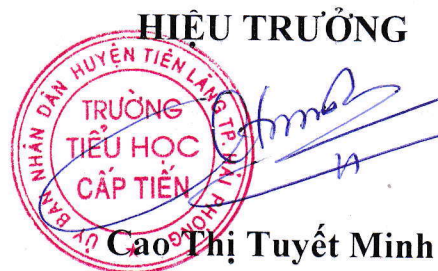 HIỆU TRƯỞNG
ỦY BAN NHÂN DÂN HUYỆN TIÊN LÃNG TP HẢI PHÒNG
TRƯỜNG
TIỂU HỌC
CẤP TIẾN
Cao Thị Tuyết Minh